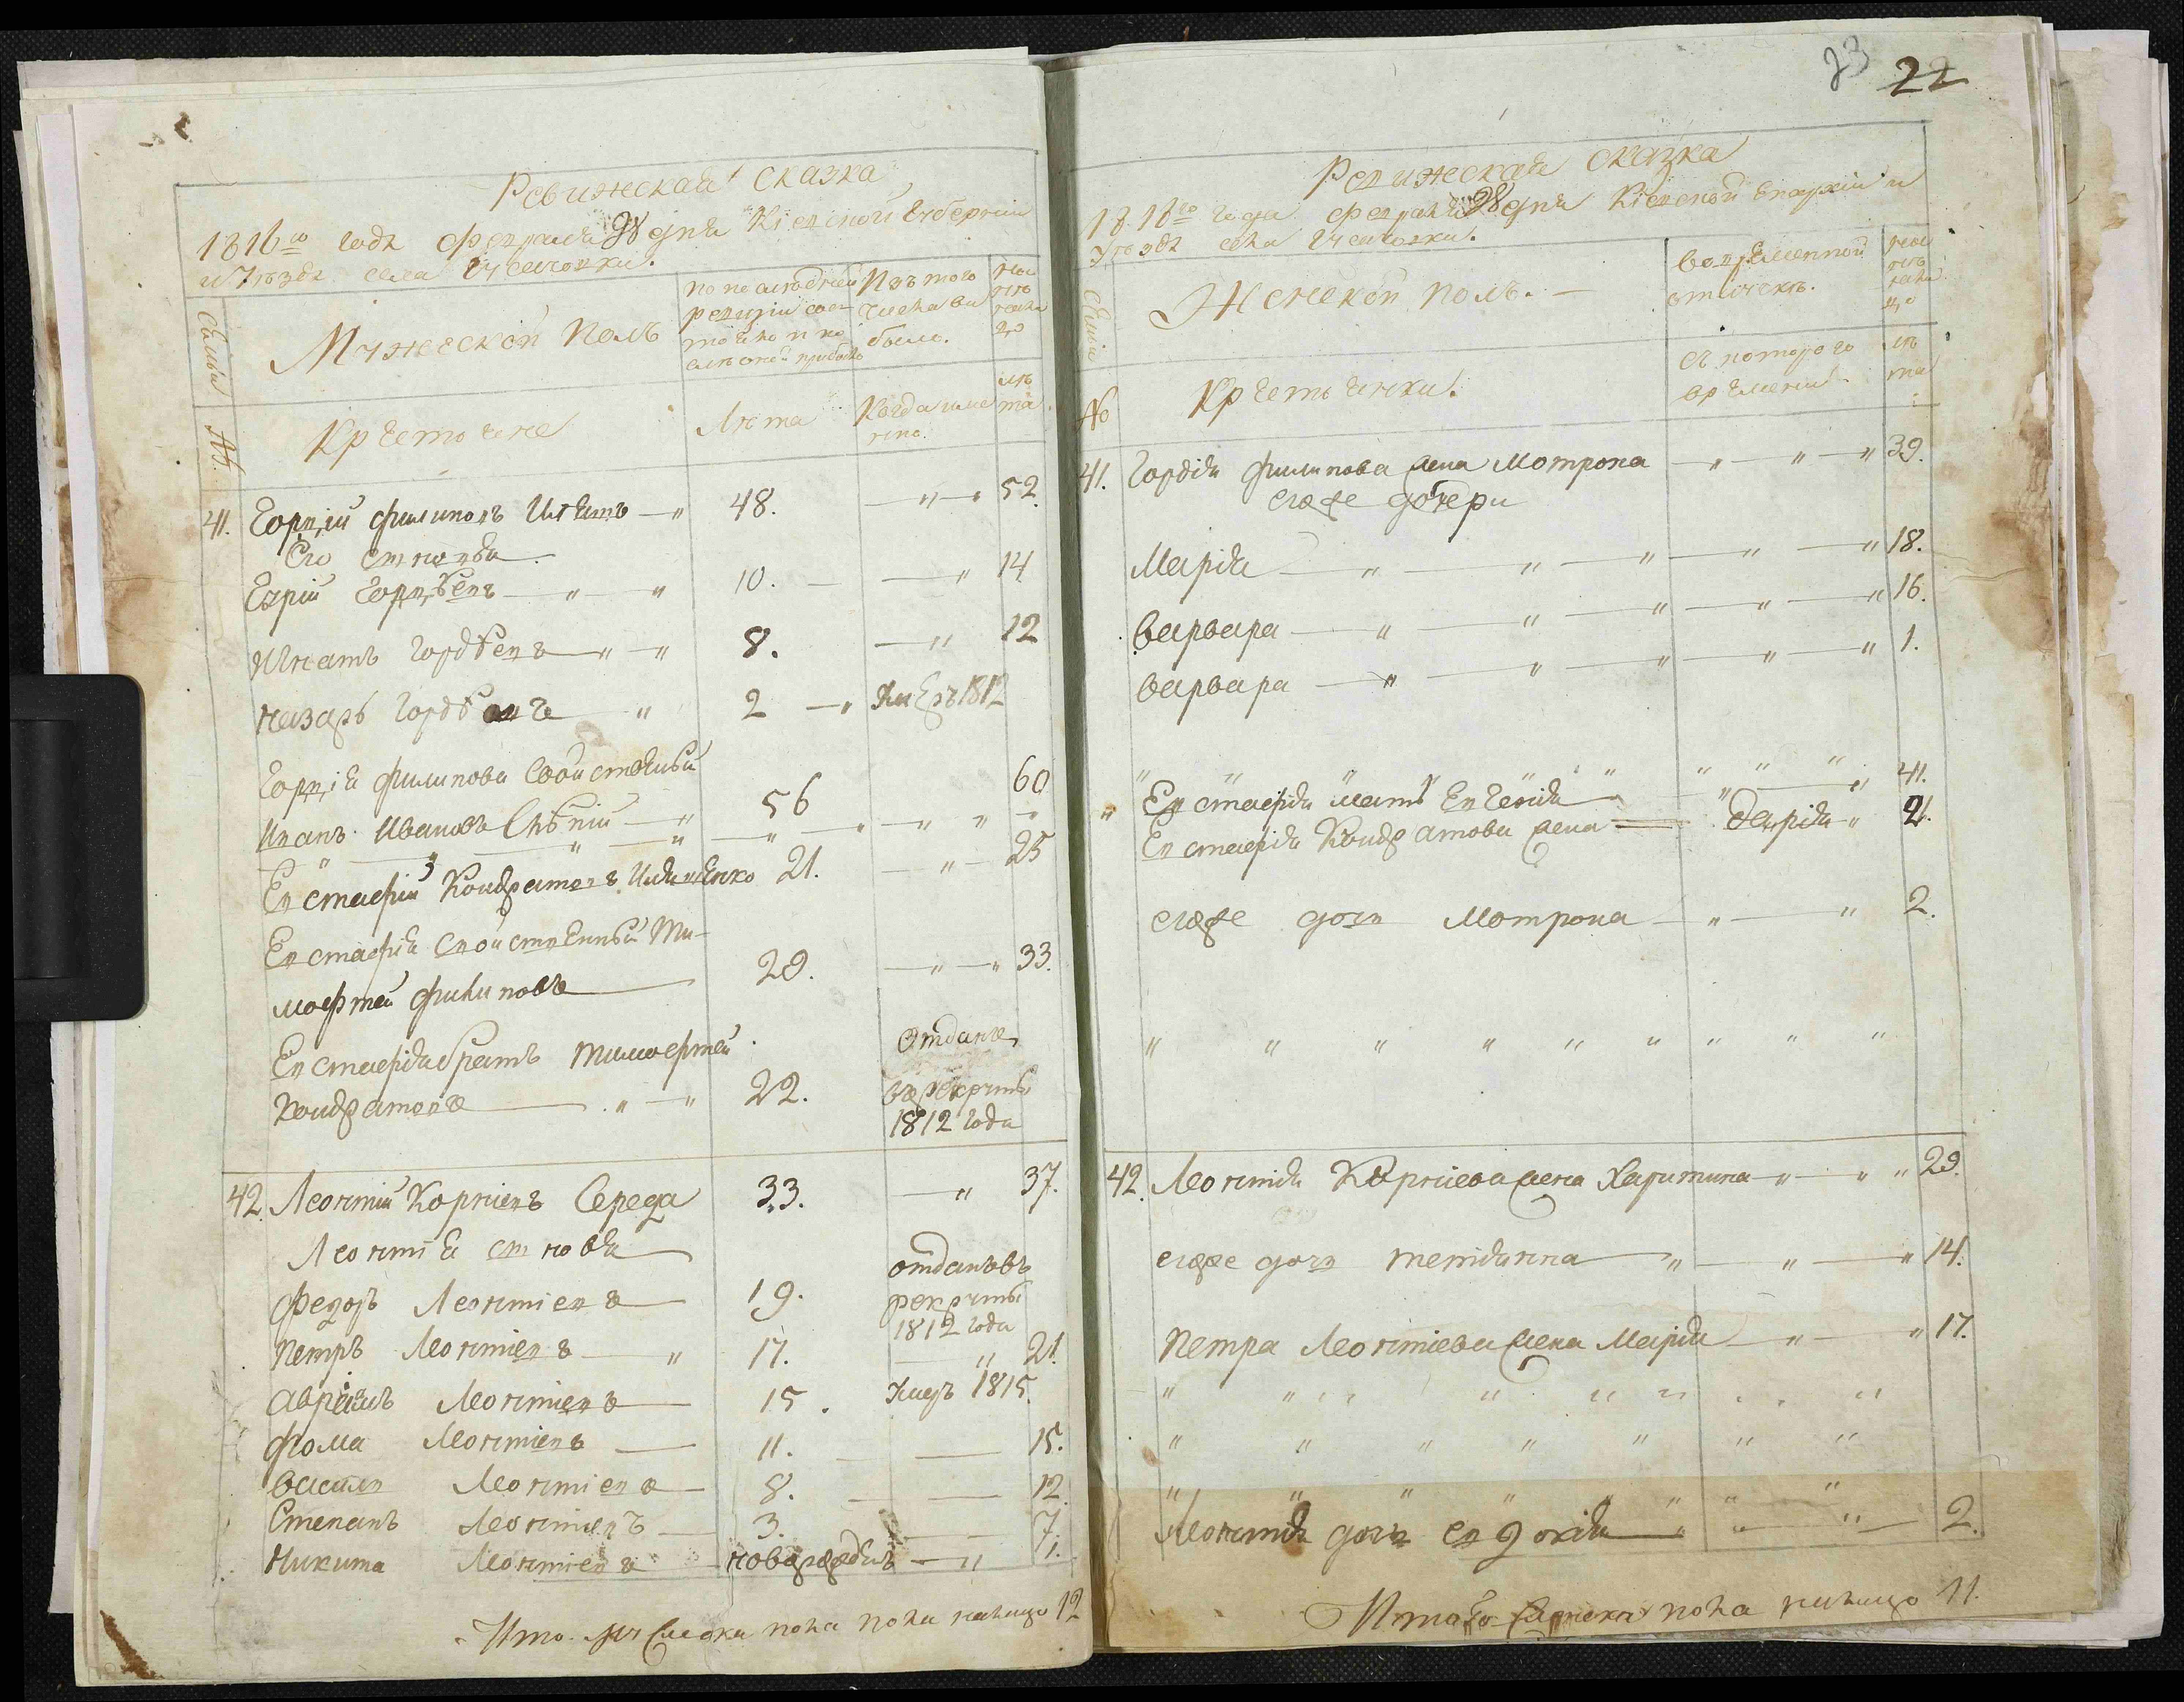 Ревижская сказка
1816го года февраля 28 дня Кіевской Губерніи
и Уезда села
Семьи
Мужеской полъ
по последней ревизіи состояло и после оной прибыло
Изъ того числа выбыло.
ныне налицо
№.
Крестьяне
Лета
Когда именно.
лета
41. Гордій Филиповъ 48. 52.
Его сыновья
Гордеевъ 10. 14
Игнатъ Гордеевъ 8. 12
Назаръ Гордеевъ 2 умеръ 1812
Гордія Филипова свойственый
Иванъ Ивановъ 56 60
Евстафій Кондратовъ 21. 25
Евстафія свойственный Ти-
мофтей Филиповъ 29. 33.
Евстафія братъ Тимофтей
Кондратовъ 22. Отданъ
в рекруты
1812 года
42. Леонтій Корніевъ Середа 33. 37.
Леонтія сыновья
Федоръ Леонтіевъ 19. отданъ въ
рекруты
1812 года
Петръ Леонтіевъ 17. 21.
Авраамъ Леонтіевъ 15. умеръ 1815.
Фома Леонтіевъ 11. 15.
Василь Леонтіевъ 8. 12.
Степанъ Леонтіевъ 3. 7.
Никита Леонтіевъ новорожденъ 1.
Ито. мужеска пола налицо 12
23 22
Ревижская сказка
1816го года февраля 28 дня Кіевской Епархіи и
Уезда села
Семьи
Женской полъ.
Во временной отлучке.
ныне налицо
№
Крестьянки.
съ которого времени
лета
41. Гордія Филипова жена Мотрона 39.
егоже дочери
Марія 18.
Варвара 16.
Варвара 1.
Евстафія мать Евгенія 41.
Евстафія Кондратова жена Дарія 21.
егоже дочь Мотрона 2.
42. Леонтія Корніева жена Харитина 29.
егоже дочь Тетіанна 14.
Петра Леонтіева жена Марія 17.
Леонтія дочь Евдокія 2.
Итого женска пола налицо 11.